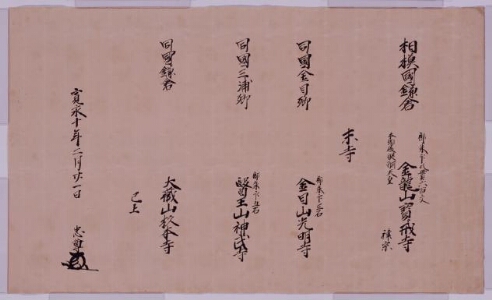 相模國鎌倉
金龍山寳戒寺
後醍醐天皇
末寺
同國金目郷
金目山光明寺
同國三浦郷
醫王山神武寺
同國鎌倉
大蔵山杉本寺
已上
寛永十年二月廿一日
忠尊